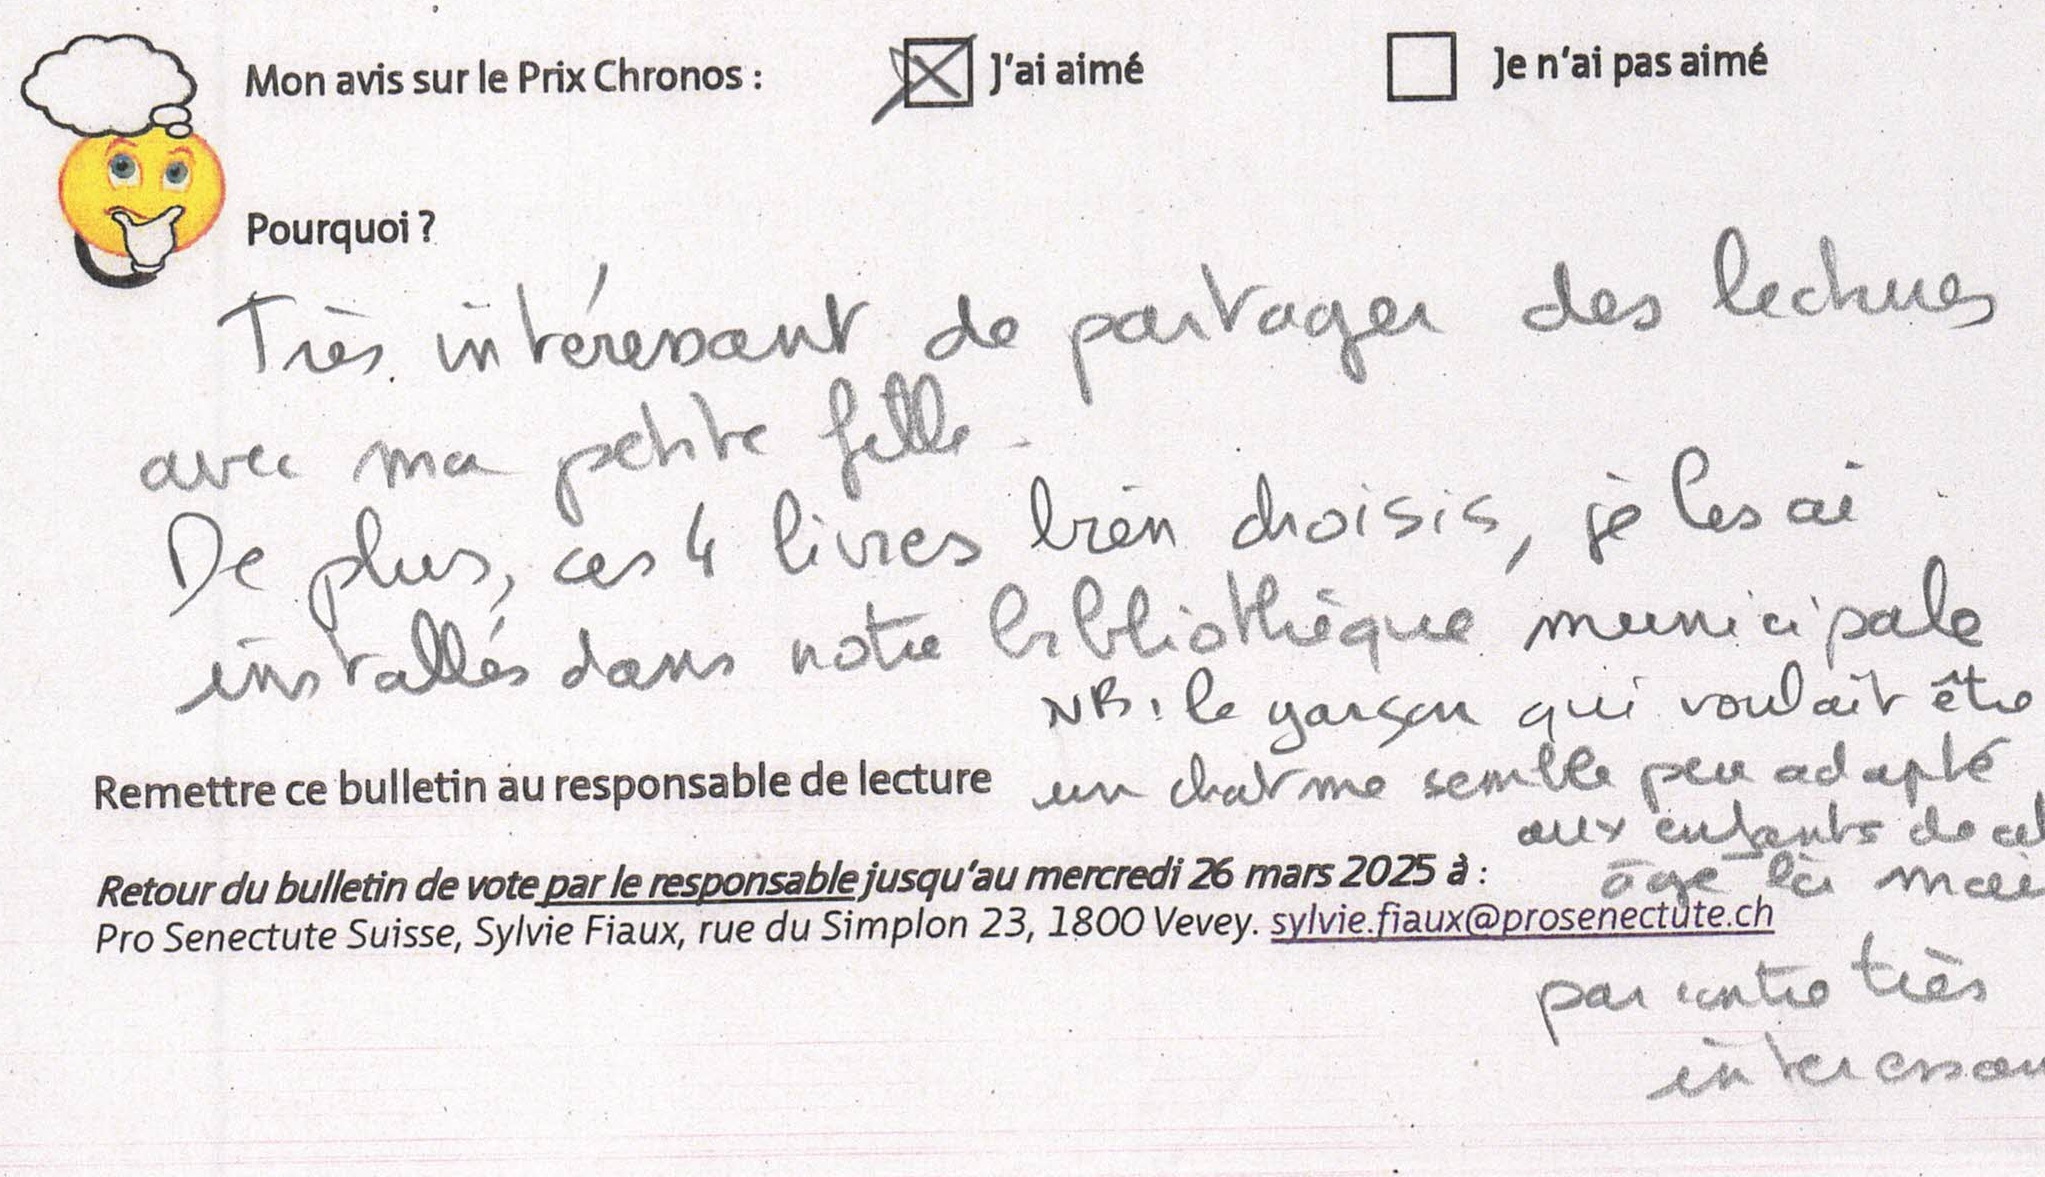 Mon avis sur le Prix Chronos : J'ai aimé Je n'ai pas aimé
Pourquoi ?
Très intéressant de partager des lectures
avec ma petite fille.
De plus, ces 4 livres bien choisis, je les ai
installés dans notre bibliothèque municipale
NB : le garçon qui voulait être
un chat me semble peu adapté
aux enfants de cet
âge là mai
par contre très
interessan
Remettre ce bulletin au responsable de lecture
Retour du bulletin de vote par le responsable jusqu'au mercredi 26 mars 2025 à :
Pro Senectute Suisse, Sylvie Fiaux, rue du Simplon 23, 1800 Vevey. sylvie.fiaux@prosenectute.ch